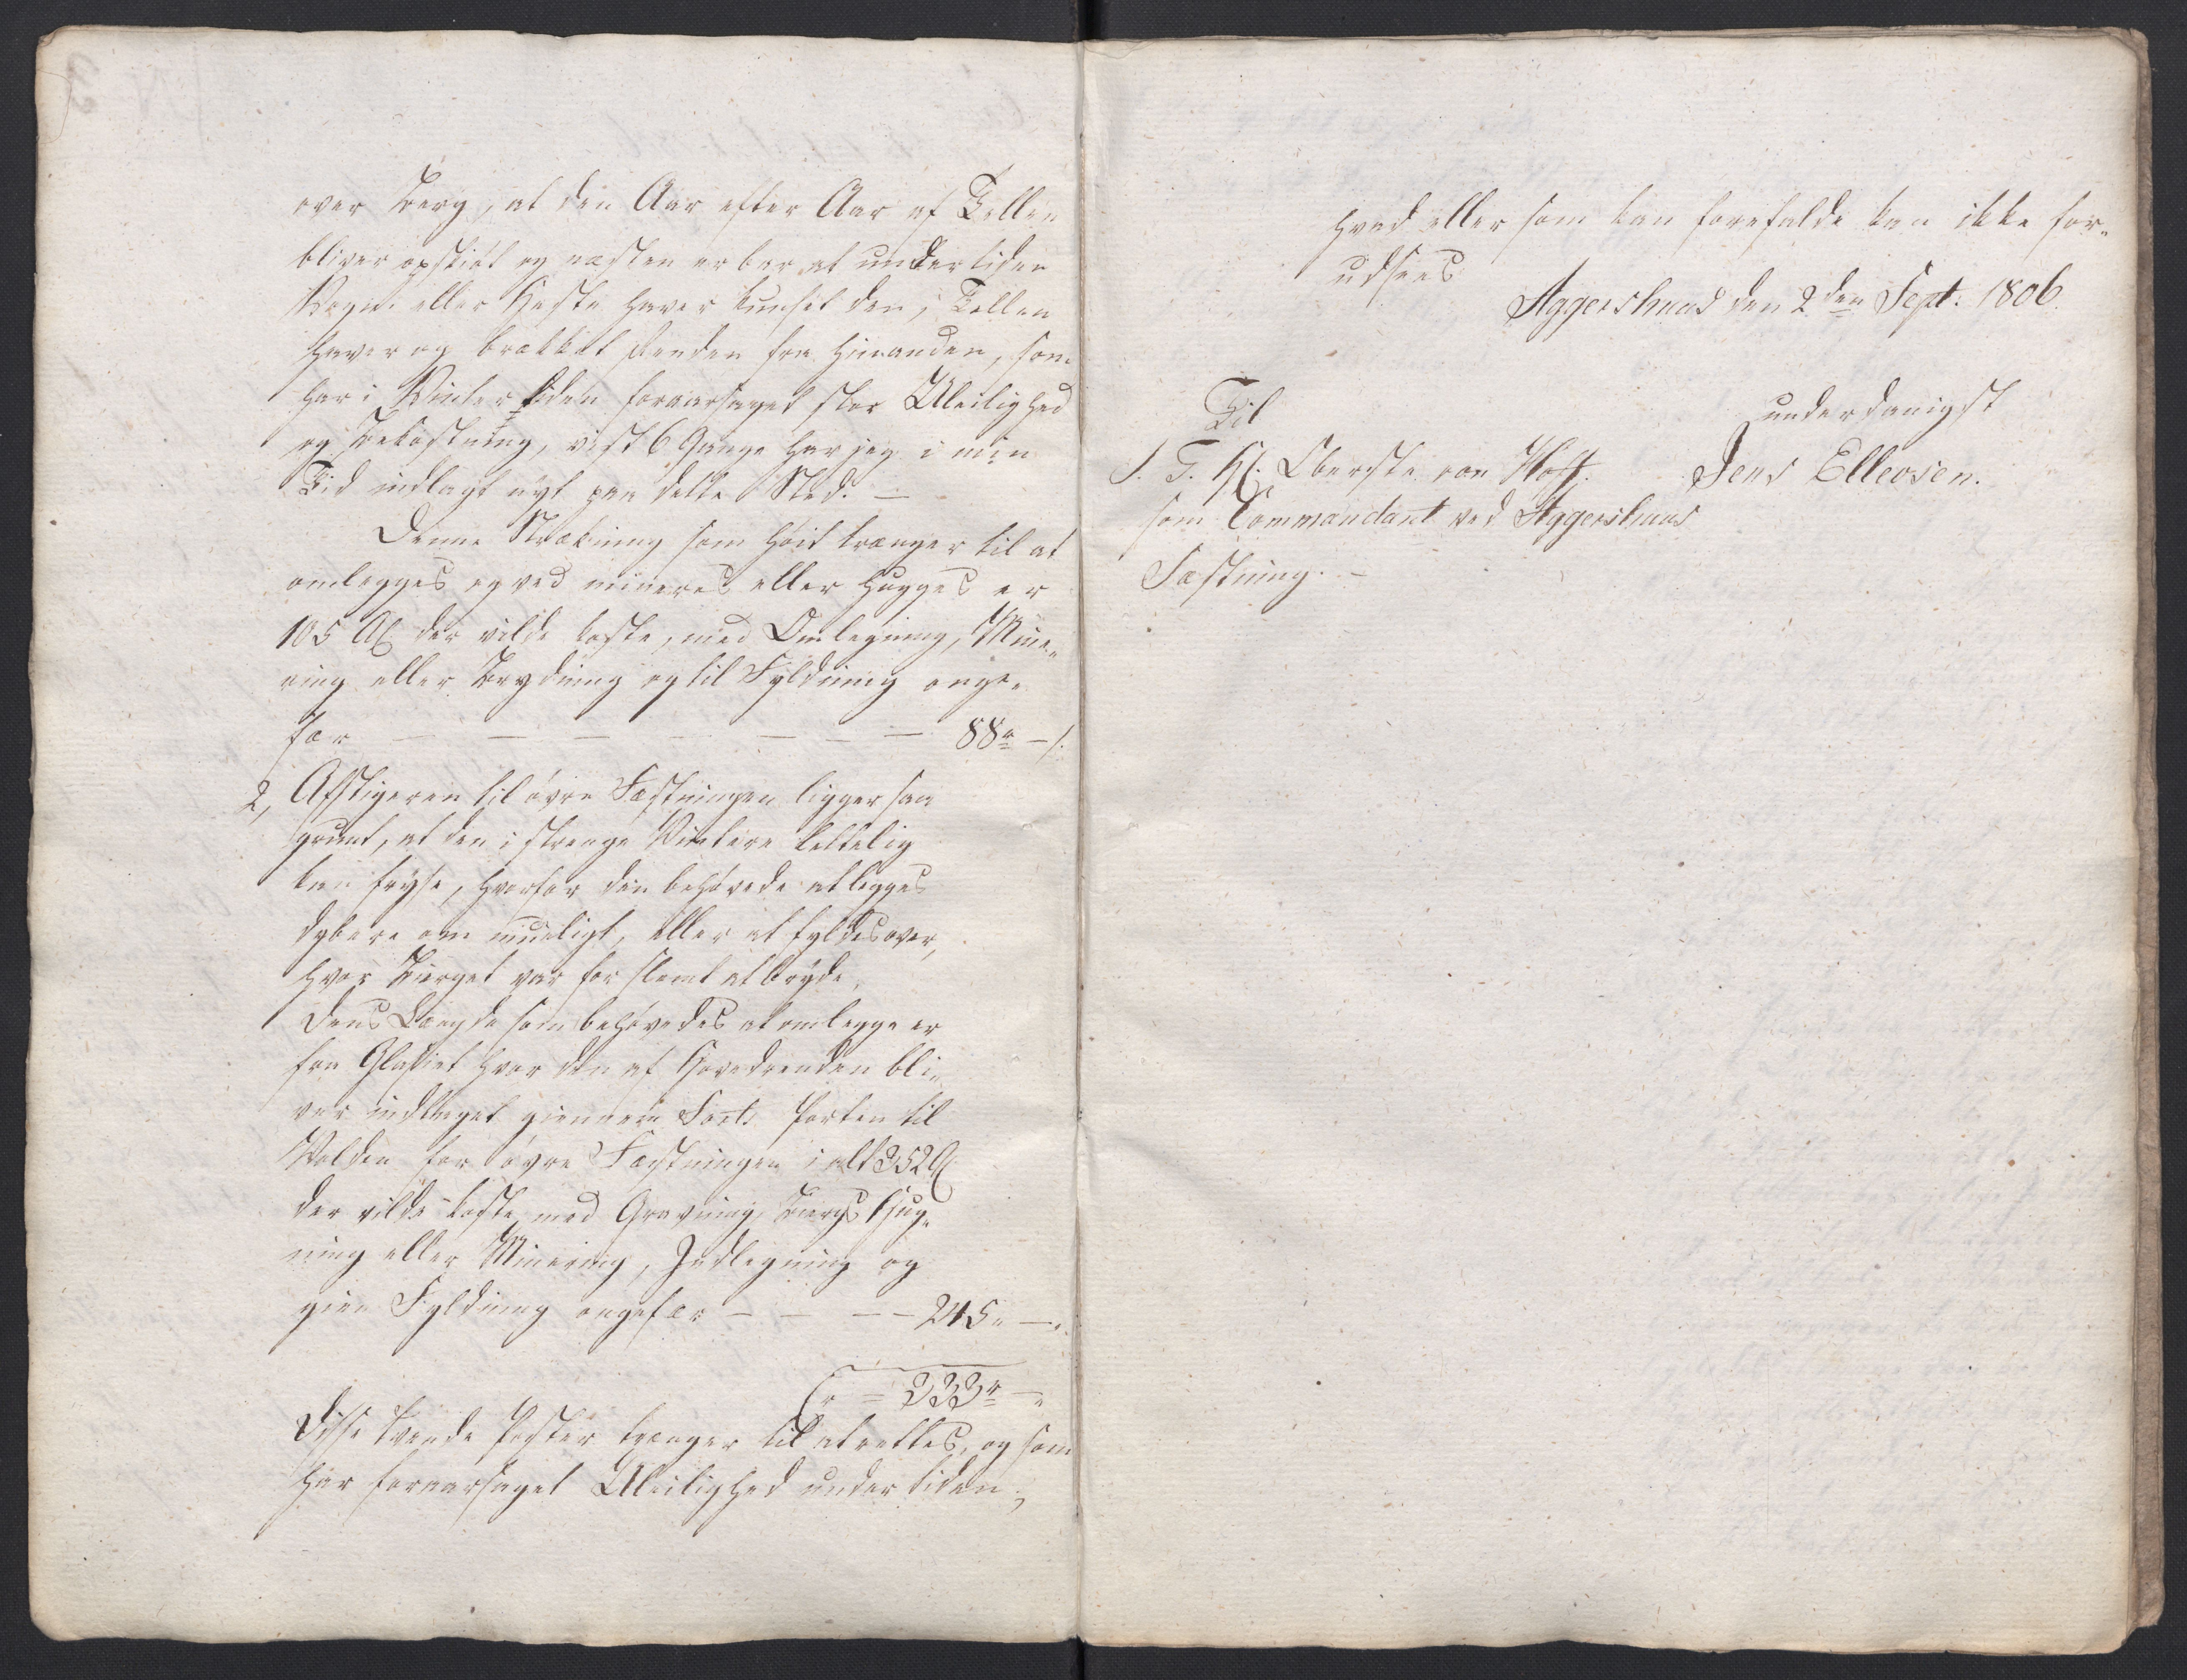 over Berg, at den Aar efter Aar af Tellen
bliver opskiøt og næsten er bar at undertiden
Vogne eller Heste haver knuset den, Tellen
haver og brækket Renden fra hinanden, som
har i Vinter tiden foraarsaget stor Uleilighed
og Bekostning, vist 6 Gange har jeg i min
Tid indlagt nyt paa dette Sted. —
Denne Strækning som høit trænger til at
omlegges og ved mineres eller hugges er
105 Al der vilde koste, med Omlegning, Mine-
ring eller Brydning og til Fyldning onge-
fær — — — — — — — 88r — s.
2, Afstigeren til øvre Fæstningen ligger saa
grunt, at den i strenge Vintere lettelig
kan fryse, hvorfor den behøvede at legges
dybere om mueligt, eller at fyldes over,
hvor Bierget var for slemt at bryde,
Dens Længde som behøvedes at omlegge er
fra Glasiet hvor den af Hovedrenden bli-
ver indtaget giennem Forts Porten til
Volden for øvre Fæstningen i alt 352 Al
der vilde koste med Gravning, Biergs Hug-
ning eller Minering, Indlegning og
gien Fyldning ongefær — — — — 245„ — „
Er = 333r — „
Disse tvende Poster trænger til at rettes, og som
har foraarsaget Uleilighed undertiden;
hvad eller som kan forefalde kan ikke for-
udsees
Aggershuus den 2den Sept. 1806.
Til
underdanigst
S. T. Hr. Oberste von Hoff.
Jens Elleosen.
som Commandant ved Aggershuus
Fæstning. —